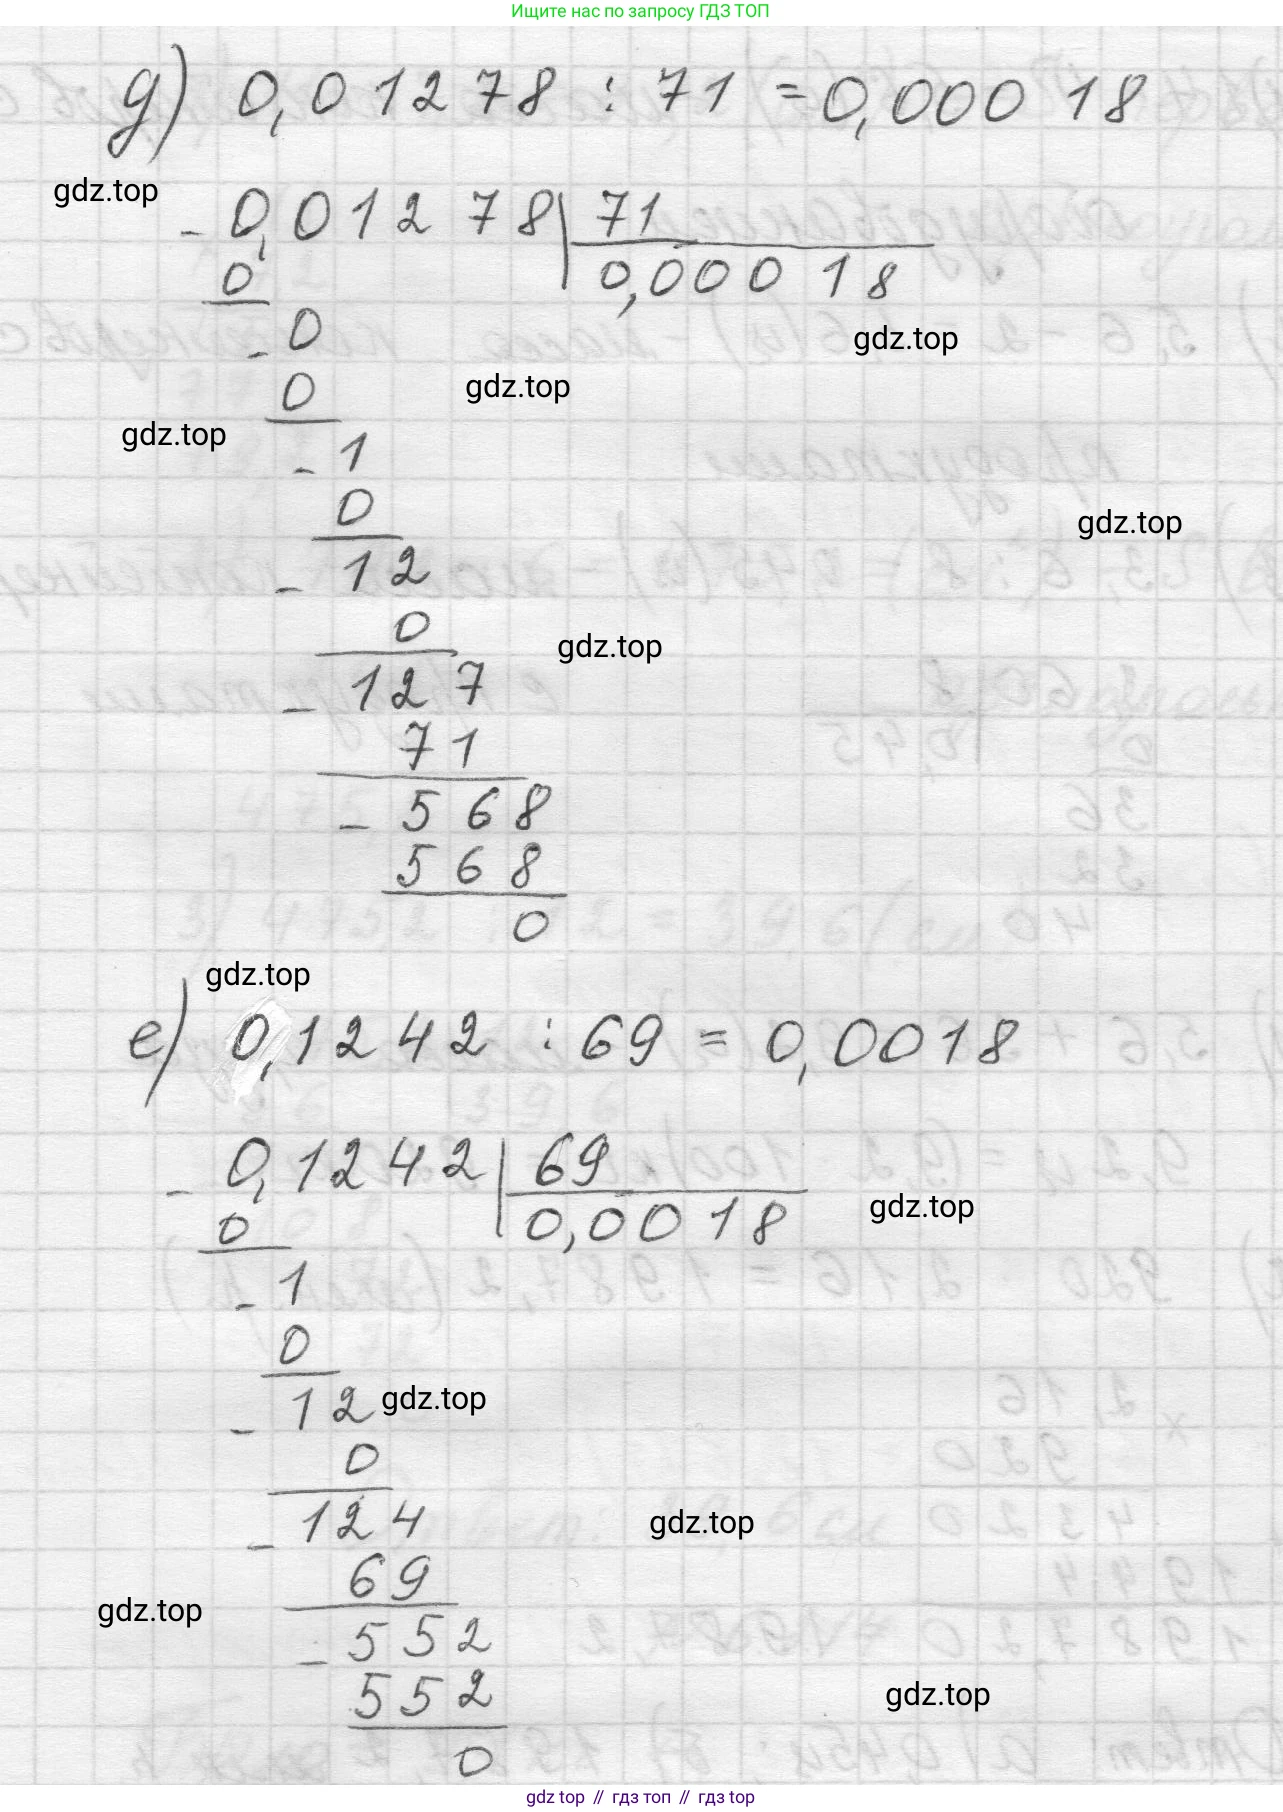 Ищите нас по запросу ГДЗ ТОП
д) 0,01278 : 71 = 0,00018
gdz.top
- 0,01278 | 71
0
0,00018
- 0
gdz.top
gdz.top
0
gdz.top
- 1
0
gdz.top
- 12
0
gdz.top
- 127
71
- 568
568
0
gdz.top
е) 0,1242 : 69 = 0,0018
- 0,1242 | 69
gdz.top
0
0,0018
- 1
0
- 12
gdz.top
0
- 124
gdz.top
69
gdz.top
- 552
552
gdz.top
0
gdz top // гдз топ // гдз top